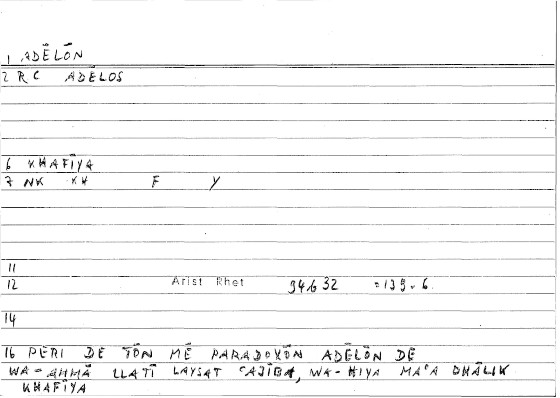 1 ADĒLŌN
2 RC ADĒLOS
6 KHAFĪYA
7 NK KH F Y
11
12 Arist Rhet 94632 = 139.6.
14
16 PERI DE TŌN MĒ PARADOXŌN ADĒLŌN DE
WA-AMMĀ LLATĪ LAYSAT ʿAJĪBA, WA-HIYA MAʿA DHĀLIK
KHAFĪYA